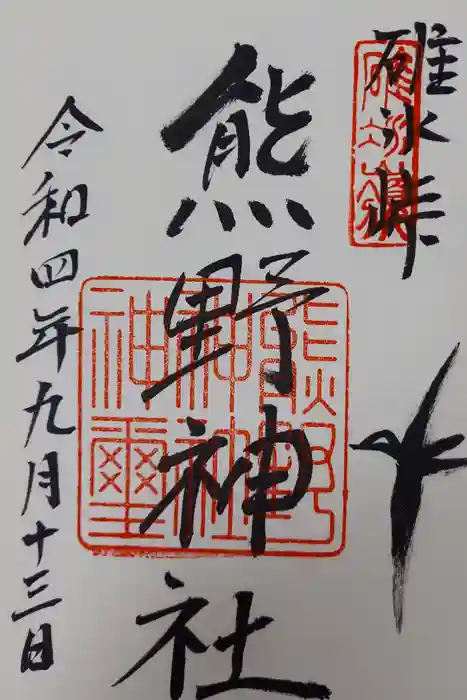 碓氷峠
碓氷嶺
熊野神社
熊野神社神璽
令和四年九月十三日